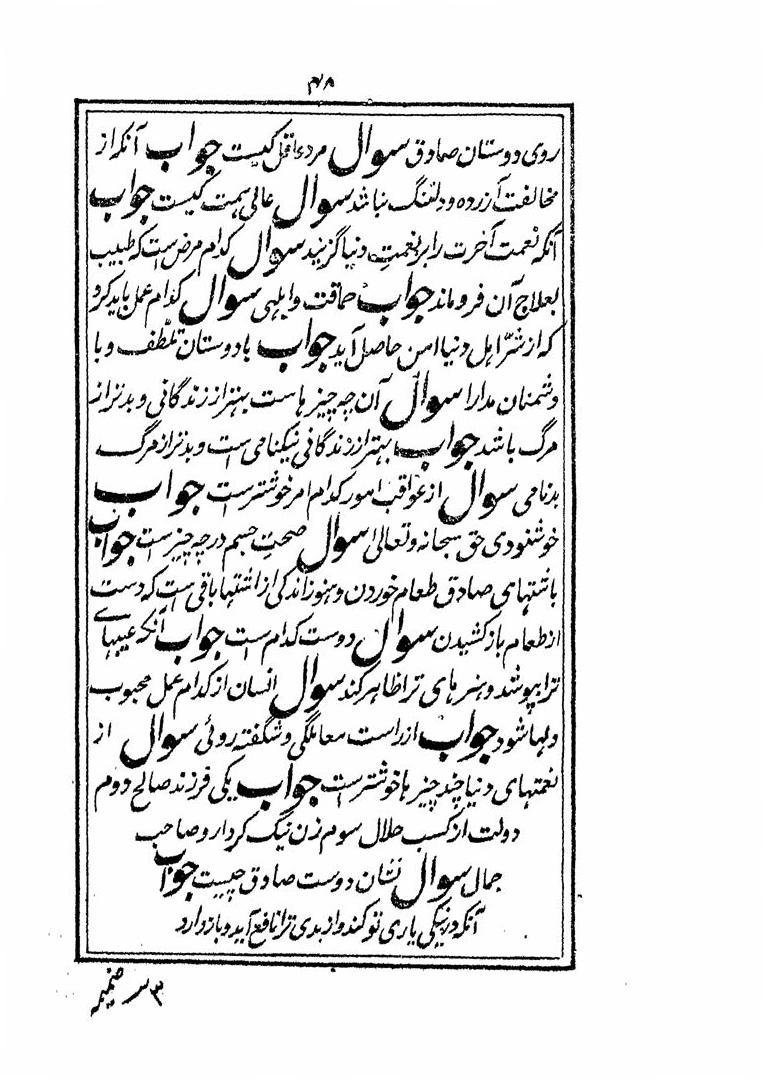 ۴۸
روی دوستان صادق سوال مرد عاقل کیست جواب آنکه از
مخالفت آزرده و دلتنگ نباشد سوال عالی همت کیست جواب
آنکه نعمت آخرت را بر نعمت دنیا گزیند سوال کدام مرض است که طبیب
بعلاج آن فرو ماند جواب حماقت و ابلهی سوال کدام عمل باید کرد
که از شرّ اهل دنیا امن حاصل آید جواب با دوستان تلطّف و با
دشمنان مدارا سوال آن چه چیزهاست بهتر از زندگانی و بدتر از
مرگ باشد جواب بهتر از زندگانی نیکنامی است و بدتر از مرگ
بدنامی سوال از عواقب امور کدام امر خوشتر است جواب
خوشنودی حق سبحانه و تعالی سوال صحت جسم در چه چیز است جواب
باشتهای صادق طعام خوردن و هنوز اندکی از اشتها باقی است که دست
از طعام باز کشیدن سوال دوست کدام است جواب آنکه عیبهای
ترا بپوشد و هنرهای ترا ظاهر کند سوال انسان از کدام عمل محبوب
دلها شود جواب از راست معاملگی و شگفته روئی سوال از
نعمتهای دنیا چند چیزها خوشتر است جواب یکی فرزند صالح دوم
دولت از کسب حلال سوم زن نیک کردار و صاحب
جمال سوال نشان دوست صادق چیست جواب
آنکه در نیکی یاری تو کند و از بدی ترا نافع آید و باز دارد
۳ ضمیمه